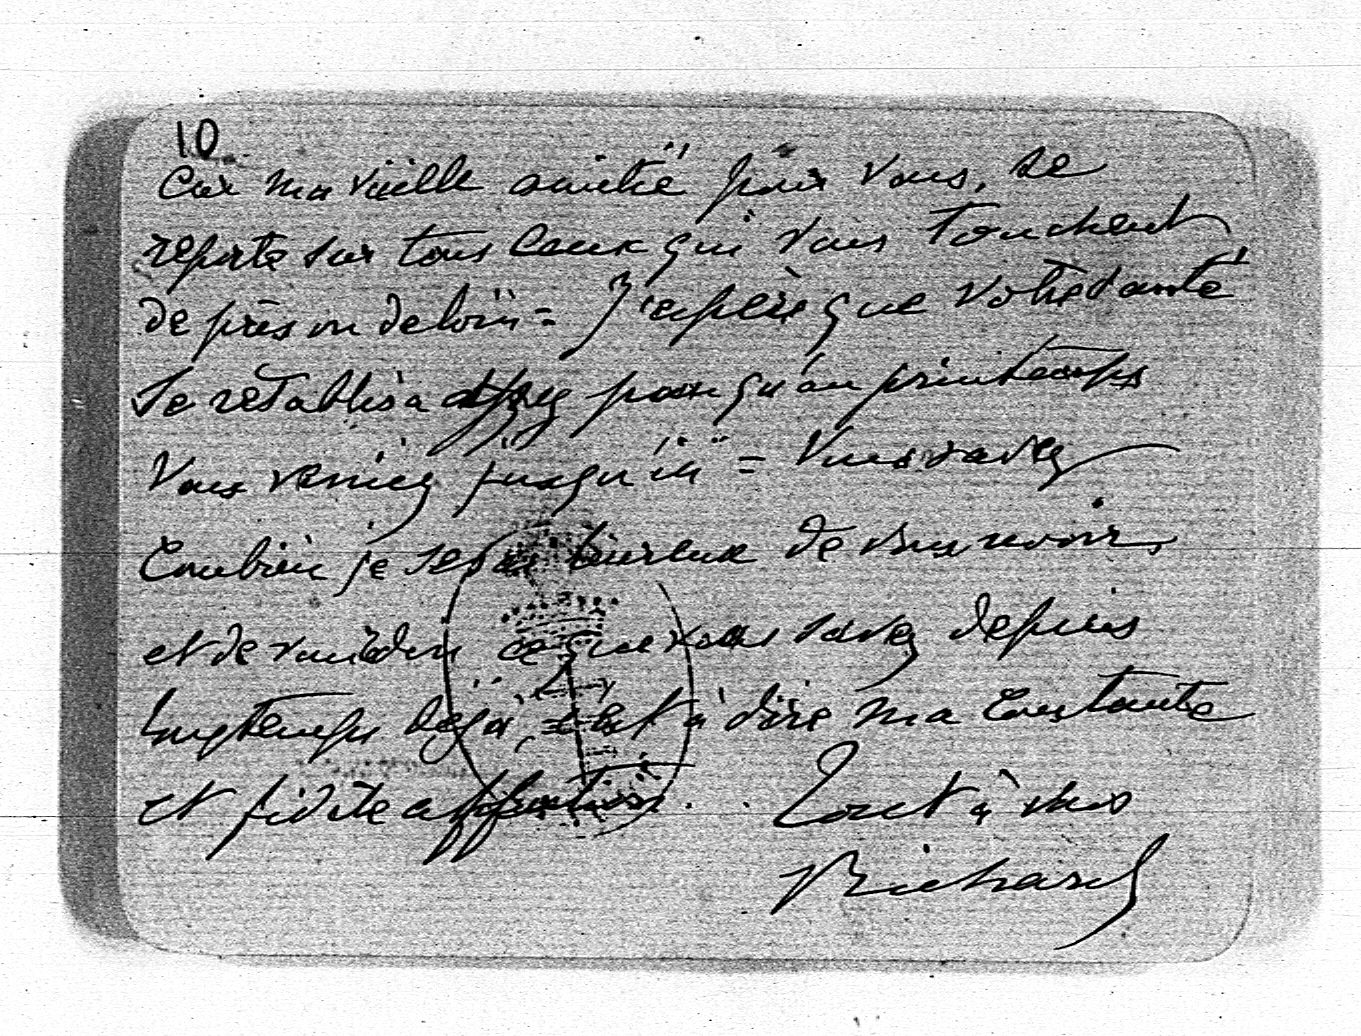 10
Car ma vieille amitié pour vous, se
reporte sur tous ceux qui vous touchent
de près ou de loin = J'espère que votre santé
se rétablira assez pour qu'au printemps
vous veniez jusqu'ici = Vous savez
combien je serai heureux de vous revoir,
et de vous dire ce que vous savez depuis
longtemps dejà, c'est à dire ma constante
et fidèle affection . . Tout à vous
Richard